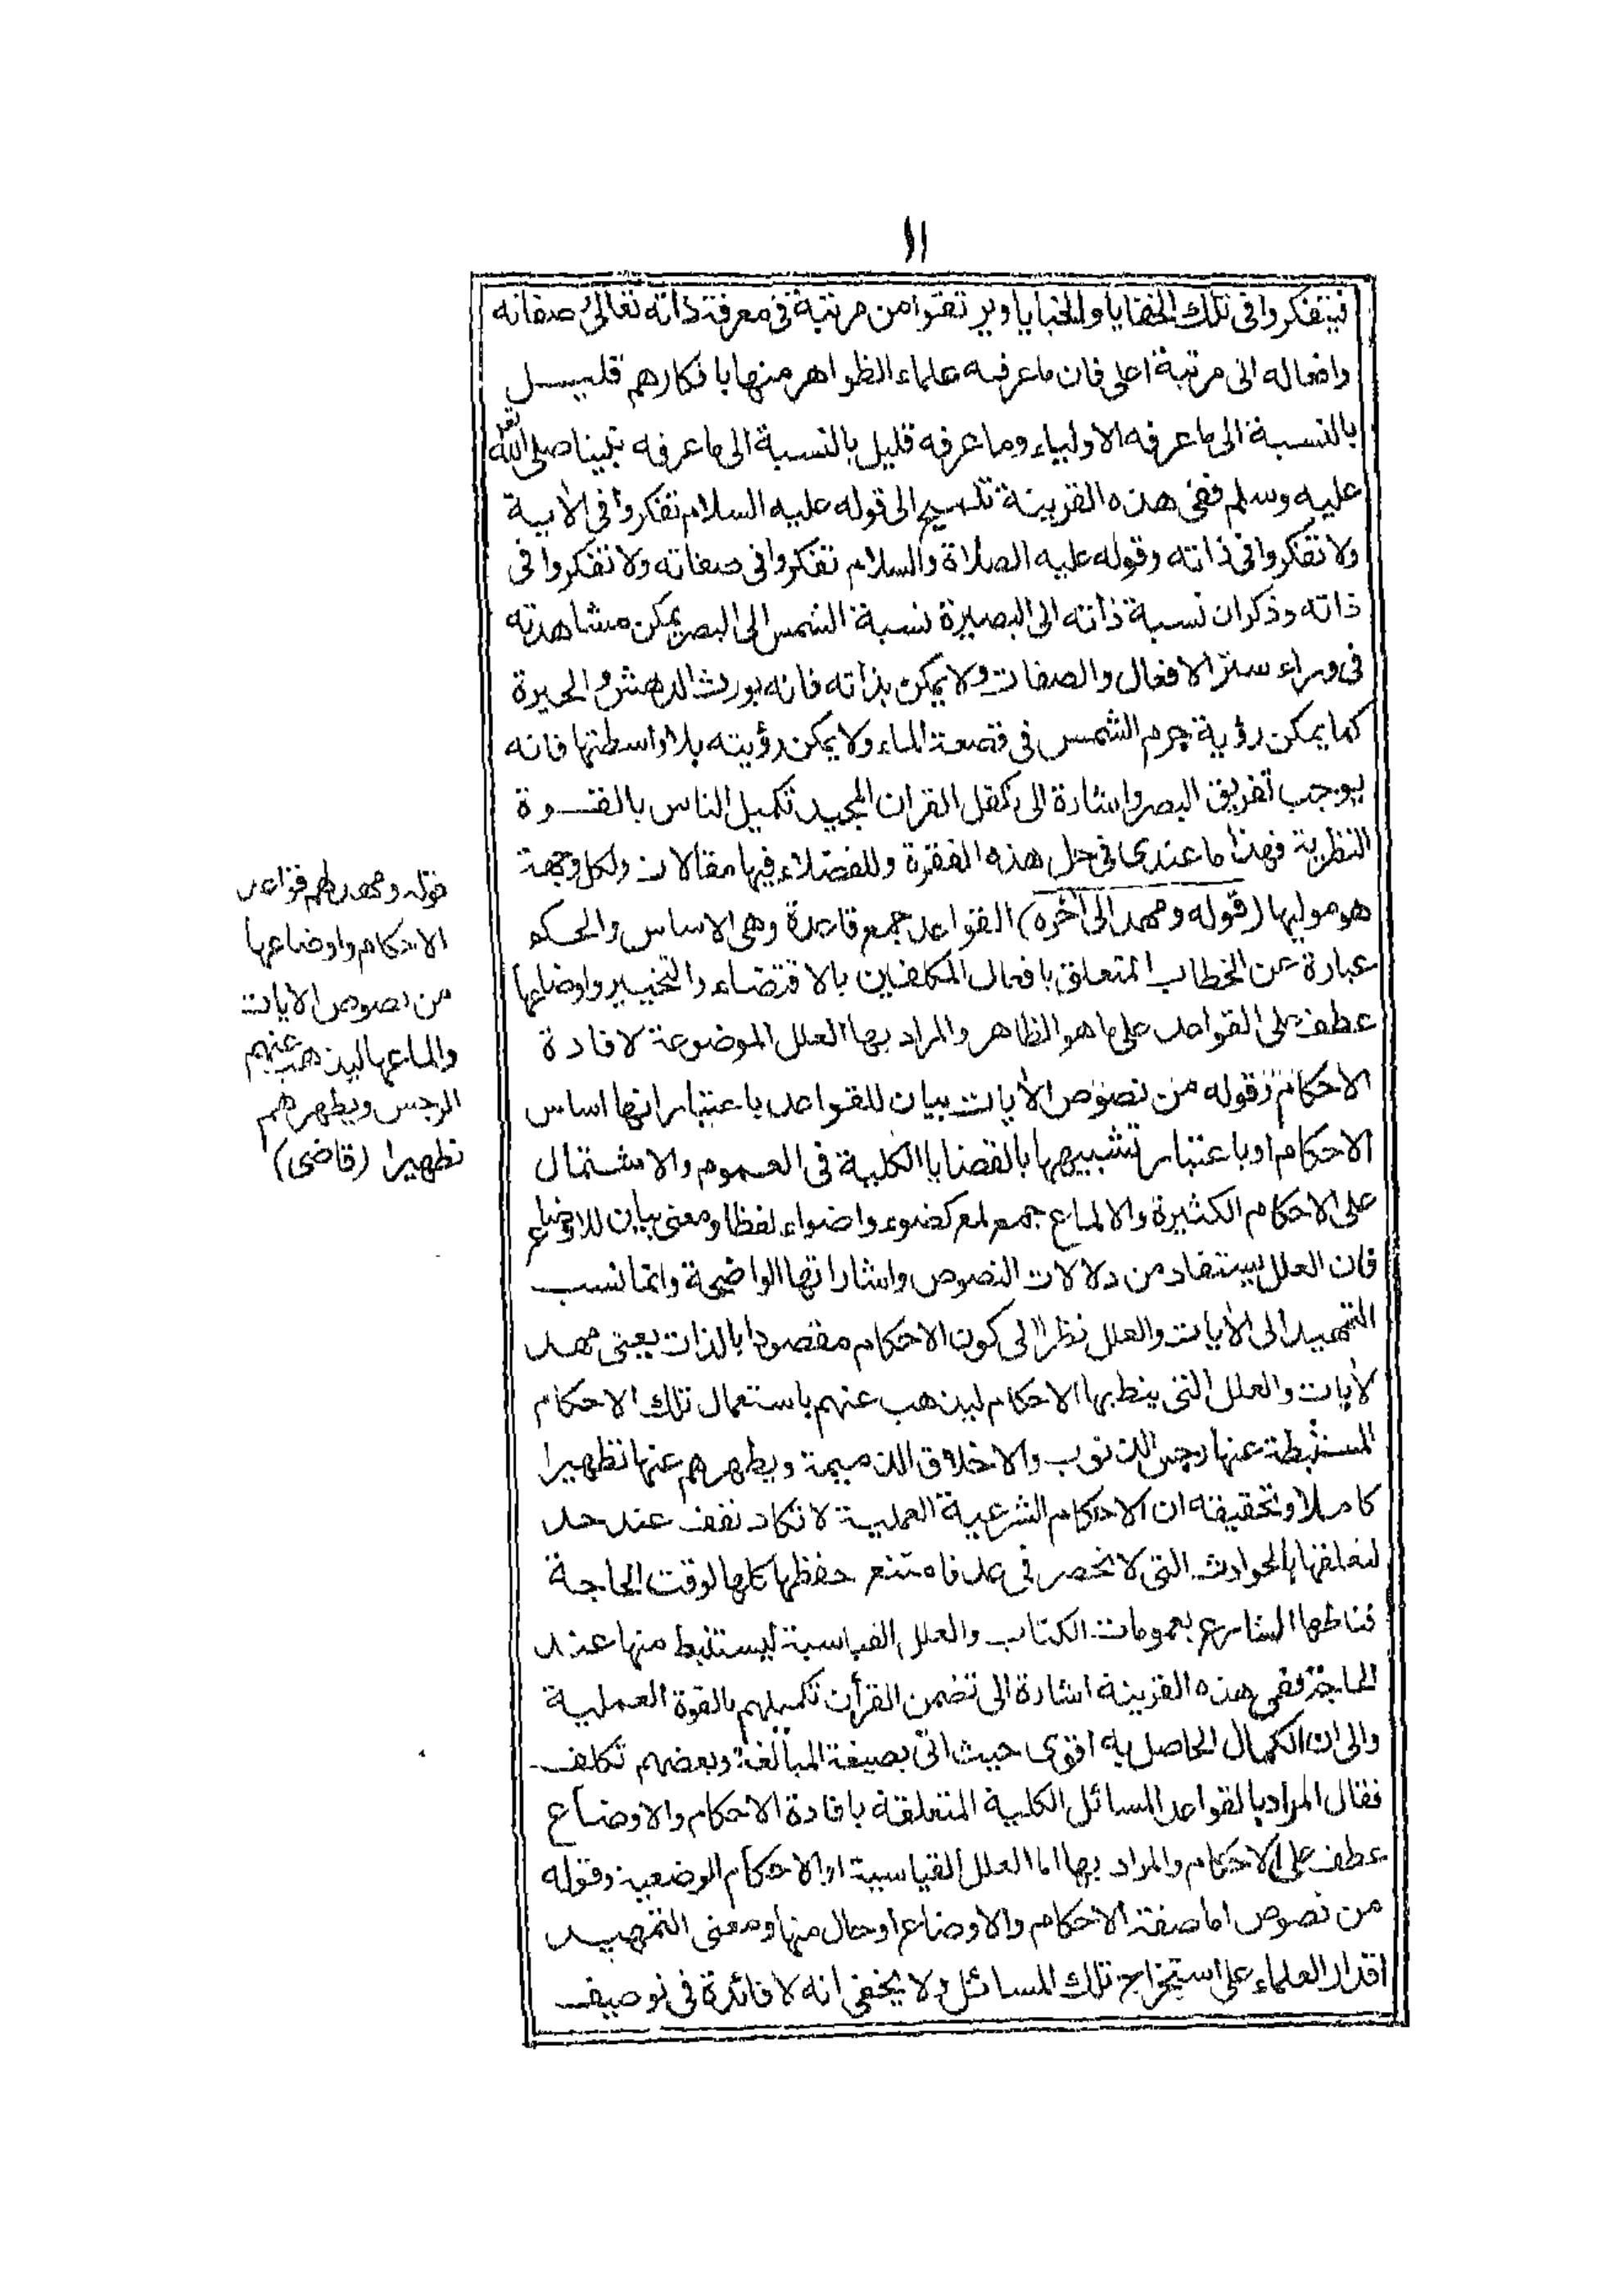 ١١
فيتفكروا في تلك الخفايا والخبايا ويرتقوا من مرتبة في معرفة ذاته تعالى صفاته
وافعاله الى مرتبة اعلى فان ما عرفه علماء الظواهر منها بافكارهم قليل
بالنسبة الى ما عرفه الاولياء وما عرفه قليل بالنسبة الى ما عرفه نبينا صلى الله تعا
عليه وسلم ففى هذه القرينة تلميح الى قوله عليه السلام تفكروا في الآية
ولا تفكروا في ذاته وقوله عليه الصلاة والسلام تفكروا في صفاته ولا تفكروا في
ذاته وذكر ان نسبة ذاته الى البصيرة نسبة الشمس الى البصر يمكن مشاهدته
في وراء ستر الافعال والصفات ولا يمكن بذاته فانه يورث الدهش والحيرة
كما يمكن رؤية جرم الشمس في قصعة الماء ولا يمكن رؤيته بلا واسطتها فانه
يوجب تفريق البصر واشارة الى تكفل القران المجيد تكميل الناس بالقوة
النظرية فهذا ما عندى في حل هذه الفقرة وللفضلاء فيها مقالات ولكل وجهة
هو موليها (قوله ومهد الى آخره) القواعد جمع قاعدة وهى الاساس والحكم
عبارة عن الخطاب المتعلق بافعال المكلفين بالاقتضاء والتخيير واوضاعها
عطف على القواعد على ما هو الظاهر والمراد بها العلل الموضوعة لافادة
الاحكام وقوله من نصوص الآيات بيان للقواعد باعتبار انها اساس
الاحكام او باعتبار تشبيهها بالقضايا الكلية في العموم والاشتمال
على الاحكام الكثيرة والالماع جمع لمع كضوء واضواء لفظا ومعنى بيان للاوضاع
فان العلل يستفاد من دلالات النصوص واشاراتها الواضحة وانما نسب
التمهيد الى الآيات والعلل نظرا الى كون الاحكام مقصودا بالذات يعنى مهد
لآيات والعلل التى ينط بها الاحكام ليذهب عنهم باستعمال تلك الاحكام
المستنبطة عنها رجس الذنوب والاخلاق الذميمة ويطهرهم عنها تطهيرا
كاملا وتحقيقه ان الاحكام الشرعية العملية لا تكاد نقف عند حد
لتعلقها بالحوادث التى لا تنحصر في عد فامتنع حفظها كلها لوقت الحاجة
فناطها الشارع بعمومات الكتاب والعلل القياسية ليستنبط منها عند
الحاجة ففى هذه القرينة اشارة الى تضمن القرآن تكميلهم بالقوة العملية
والى ان الكمال الحاصل به اقوى حيث اتى بصيغة المبالغة وبعضهم تكلف
فقال المراد بالقواعد المسائل الكلية المتعلقة بافادة الاحكام والاوضاع
عطف على الاحكام والمراد بها اما العلل القياسية او الاحكام الوضعية وقوله
من نصوص اما صفة الاحكام والاوضاع او حال منها ومعنى التمهيد
اقدار العلماء على استخراج تلك المسائل ولا يخفى انه لا فائدة في توصيف
قوله ومهد لهم قواعد
الاحكام واوضاعها
من نصوص الآيات
والماعها ليذهب عنهم
الرجس ويطهرهم
تطهيرا (قاضى)